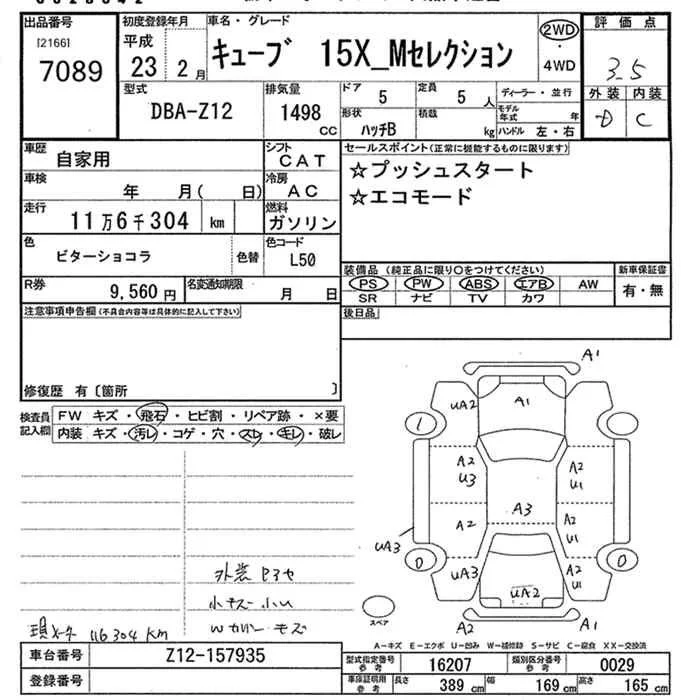 出品番号 初度登録年月 車名・グレード 評価点
[2166]
7089
平成
23 2月
キューブ 15X_Mセレクション
2WD
・
4WD
3.5
型式 排気量 ドア 定員 ディーラー・並行 外装 内装
DBA-Z12 1498 cc 5 5 人
形状 積載 モデル年式 年
ハッチB kg ハンドル 左・右
D C
車歴 シフト セールスポイント(正常に機能するものに限ります)
自家用 CAT ☆プッシュスタート
車検 冷房 ☆エコモード
年 月( 日) AC
走行 燃料
11万6千304 km ガソリン
色 色替 色コード
ビターショコラ L50
装備品 (純正品に限り○をつけてください) 新車保証書
PS PW ABS エアB AW 有・無
SR ナビ TV カワ
R券 名変通知期限
9,560円 月 日
注意事項申告欄(不具合内容等は具体的に記入して下さい) 後日品
修復歴 有〔箇所 〕
検査員記入欄
FW キズ・飛石・ヒビ割・リペア跡・×要
内装 キズ・汚レ・コゲ・穴・スレ・キレ・破レ
A1
UA2 A1
A2 U3 A2 U1
A3
A2 A2 U1
UA3
UA3 UA2 A2 U1
A2 A1
スペア
小キズ 小U
116304 KM
A-キズ E-エクボ U-凹み W-補修跡 S-サビ C-腐食 XX-交換済
車台番号 Z12-157935
登録番号
型式指定番号 参考 16207 類別区分番号 参考 0029
車庫証明用 参考 長さ 389 cm 幅 169 cm 高さ 165 cm